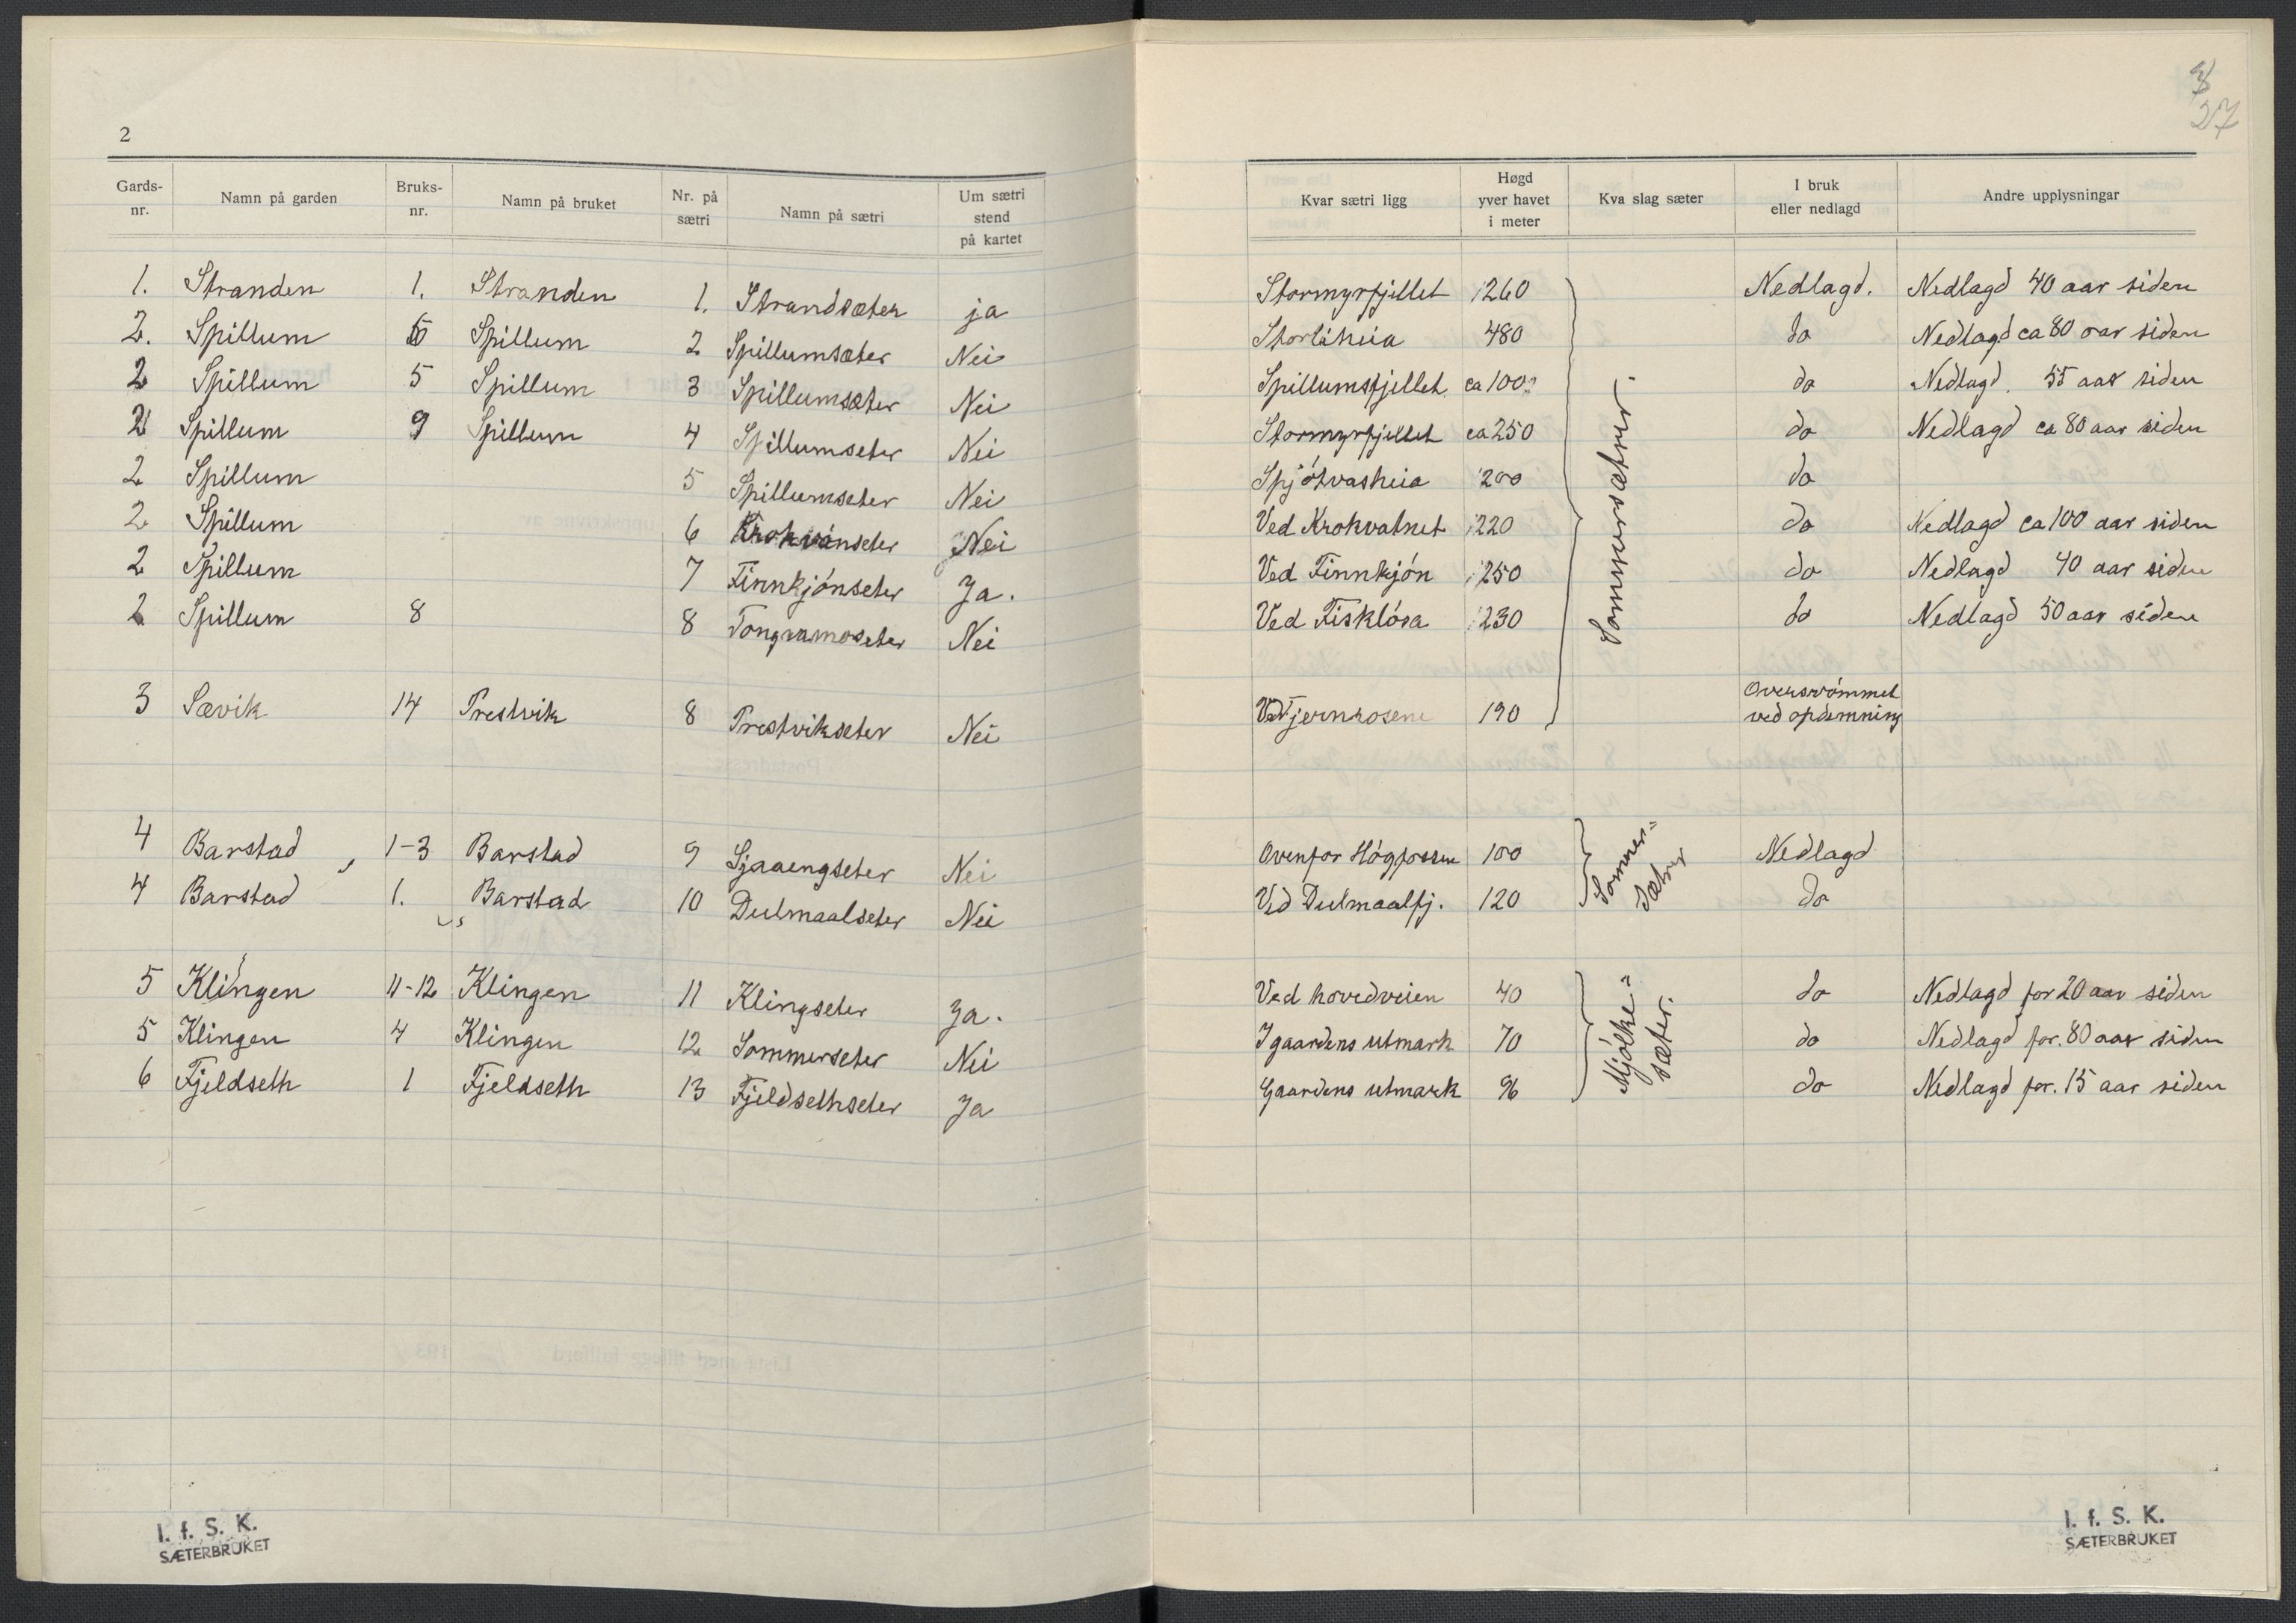 2
Gards-nr. Namn på garden Bruks-nr. Namn på bruket Nr. på sætri Namn på sætri Um sætri stend på kartet
1. Stranden 1. Stranden 1. Strandsæter ja
2. Spillum Spillum 2 Spillumsæter Nei
2 Spillum 5 Spillum 3 Spillumsæter Nei
2 Spillum 9 Spillum 4 Spillumseter Nei
2 Spillum 5 Spillumseter Nei
2 Spillum 6 Nei
2 Spillum 7 Finnkjónseter Ja.
2 Spillum 8 8 Nei
3 Sævik 14 Prestvik 8 Prestvikseter Nei
4 Barstad 1-3 Barstad 9 Sjaaengseter Nei
4 Barstad 1. Barstad 10 Dulmaalseter Nei
5 Klingen 11-12 Klingen 11 Klingseter Ja.
5 Klingen 4 Klingen 12 Sommerseter Nei
6 Fjeldseth 1 Fjeldseth 13 Fjeldsethseter Ja
I. f. S. K.
SÆTERBRUKET
27
Kvar sætri ligg Høgd yver havet i meter Kva slag sæter I bruk eller nedlagd Andre upplysningar
Stormyrfjellet 260 Nedlagd. Nedlagd 40 aar siden
Storliheia 480 do Nedlagd ca 80 aar siden
Spillumsfjellet ca 100 do Nedlagd. 55 aar siden
Stormyrfjellet ca 250 do Nedlagd ca 80 aar siden
Spjótvasheia 200 do
Ved Krokvatnet 220 do Nedlagd ca 100 aar siden
Ved Finnkjón 250 do Nedlagd 40 aar siden
Ved Fisklósa 230 do Nedlagd 50 aar siden
Sommersætrer.
Ved Tjernrosene 190 Oversvómmet
ved opdemning
Ovenfor Högfossen 100 Nedlagd
Ved Dulmaalfj. 120 do
Sommer=
sætrer
Ved hovedveien 40 do Nedlagd for 20 aar siden
I gaardens utmark 70 do Nedlagd for. 80 aar siden
Gaardens utmark 96 do Nedlagd for. 15 aar siden
Mjólke=
sæter.
I. f. S. K.
SÆTERBRUKET